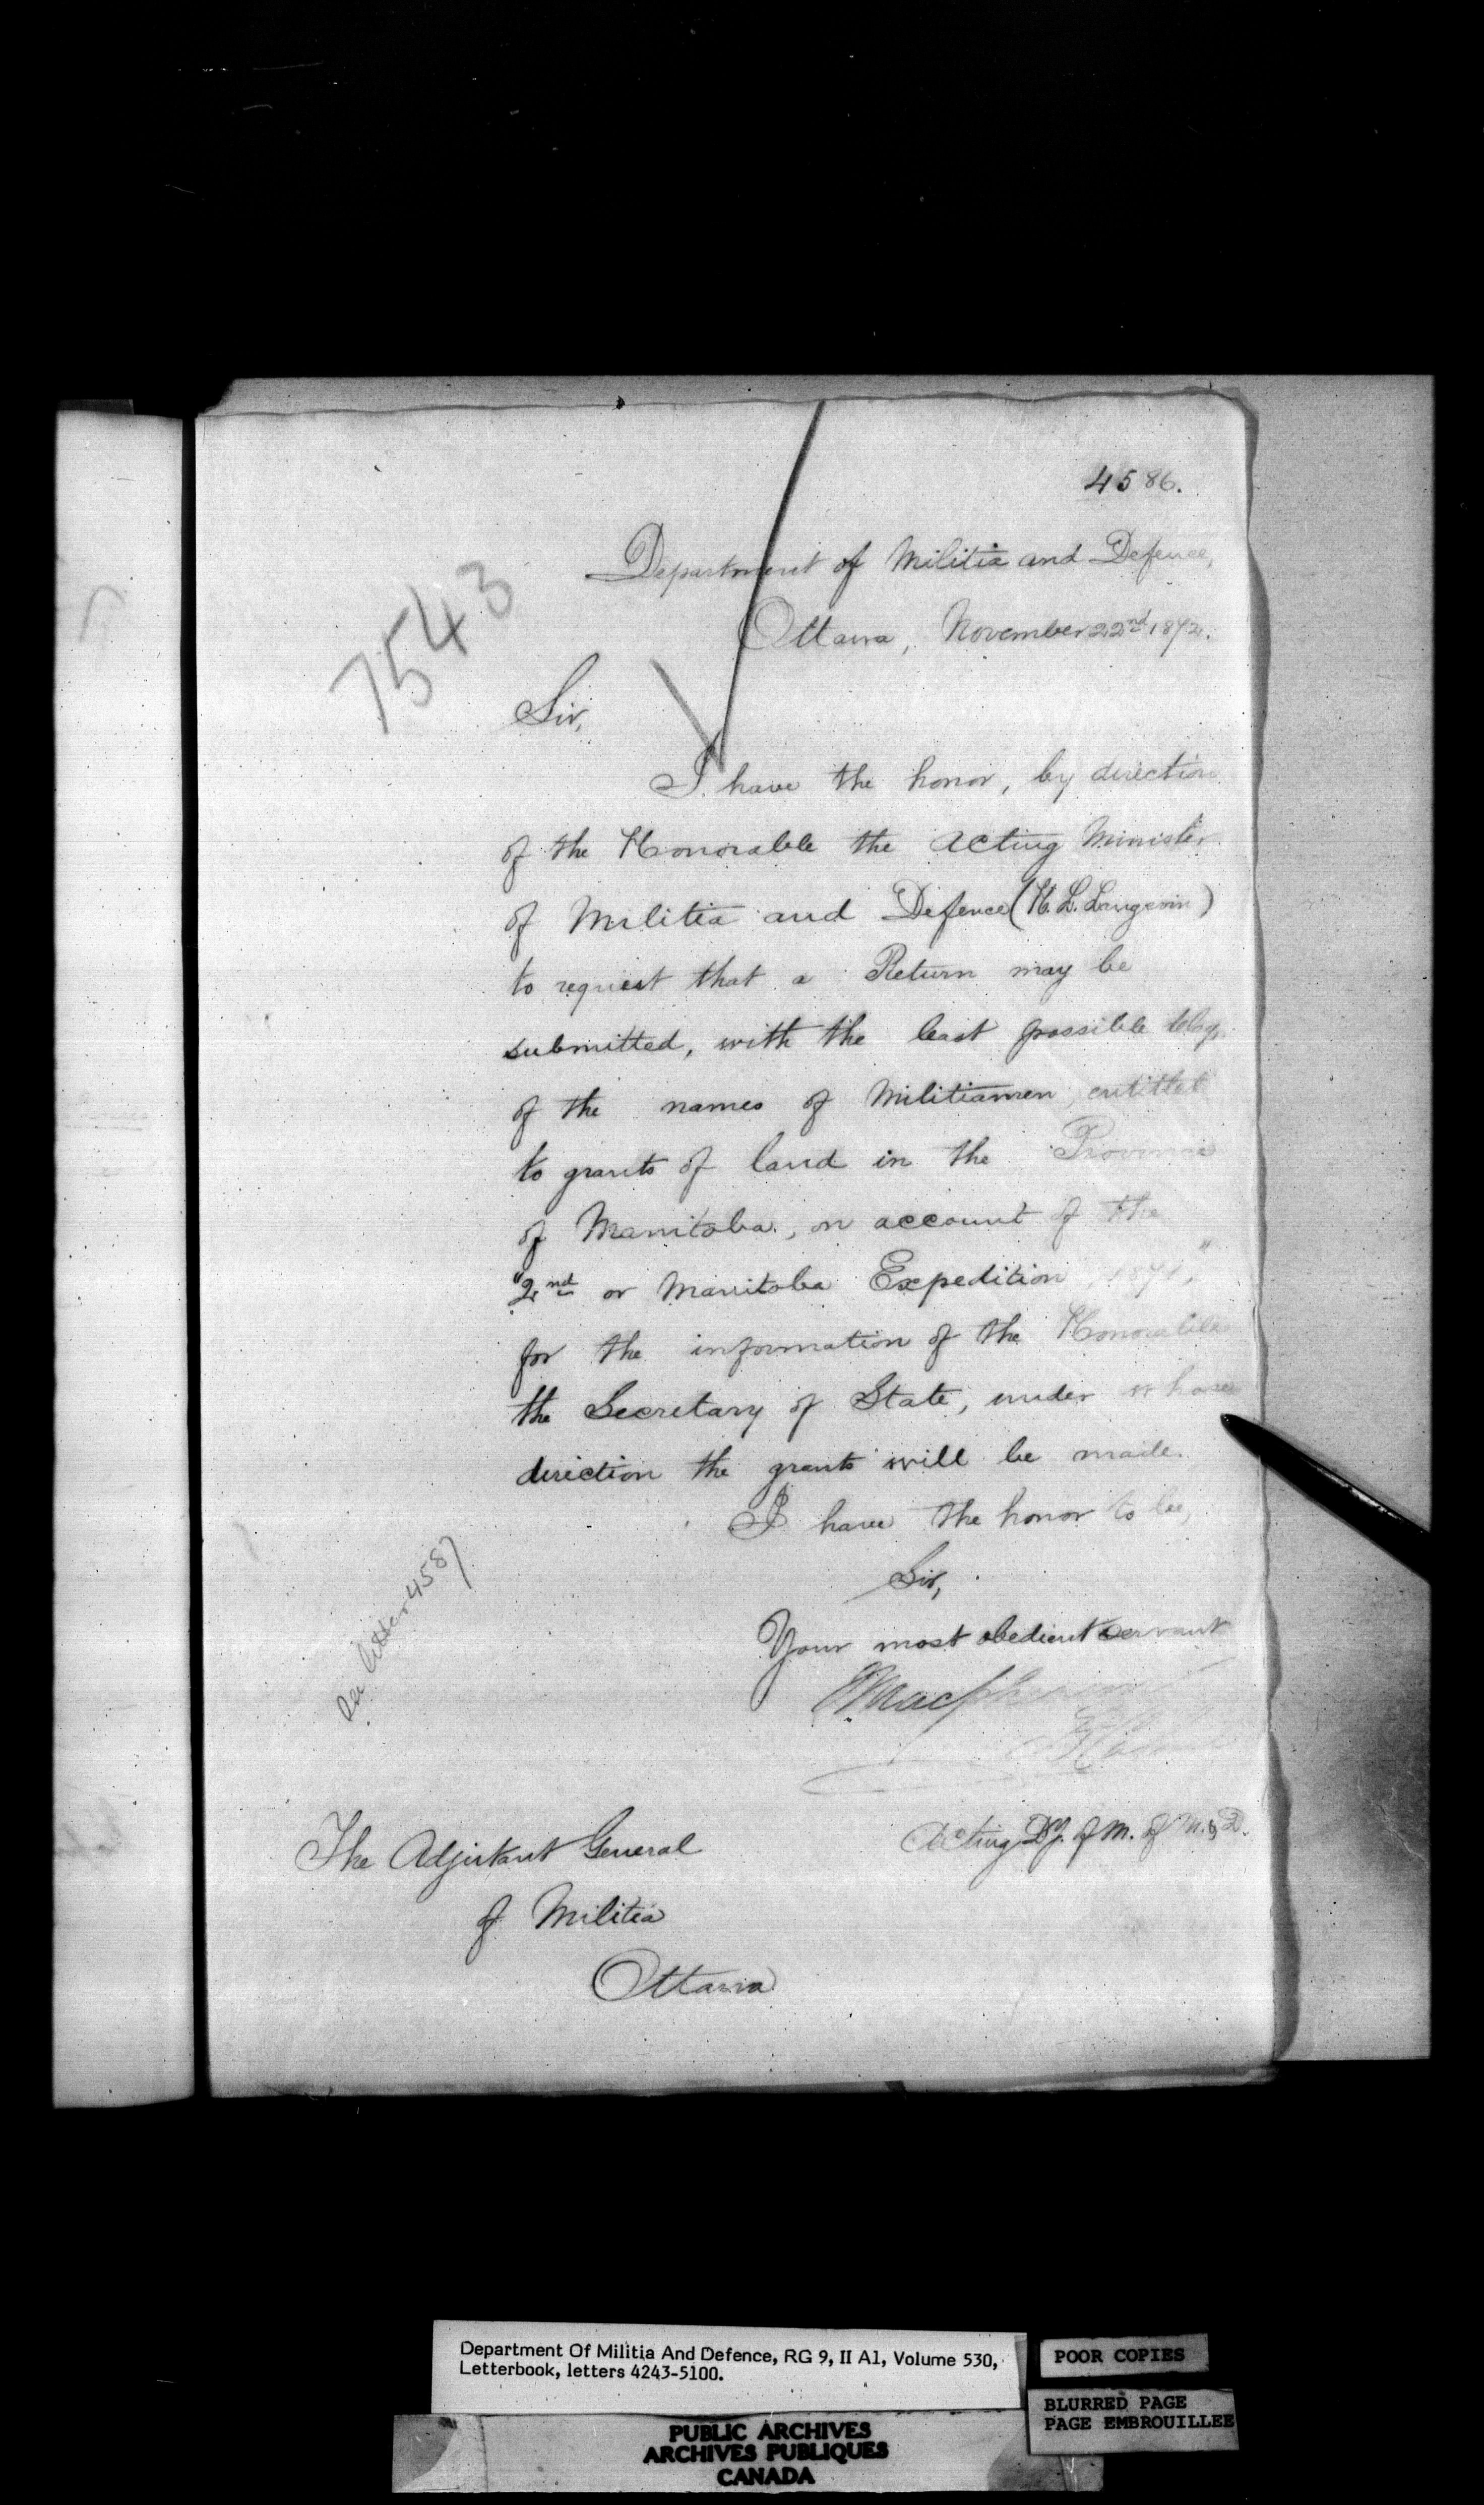 4586.
7543
Department of Militia and Defence,
Ottawa, November 22nd 1872.
Sir,
I have the honor, by direction
of the Honorable the Acting Minister
of Militia and Defence (H. L. Langevin)
to request that a Return may be
submitted, with the least possible delay,
of the names of Militiamen, entitled
to grants of land in the Province
of Manitoba, on account of the
"2nd or Manitoba Expedition, 1871,"
for the information of the Honorable
the Secretary of State, under whose
direction the grants will be made.
I have the honor to be,
Sir,
Your most obedient servant
Macpherson
Acting Dy. of M. of M. & D.
See letter 4587
The Adjutant General
of Militia
Ottawa
Department Of Militia And Defence, RG 9, II A1, Volume 530,
Letterbook, letters 4243-5100.
POOR COPIES
BLURRED PAGE
PAGE EMBROUILLEE
PUBLIC ARCHIVES
ARCHIVES PUBLIQUES
CANADA